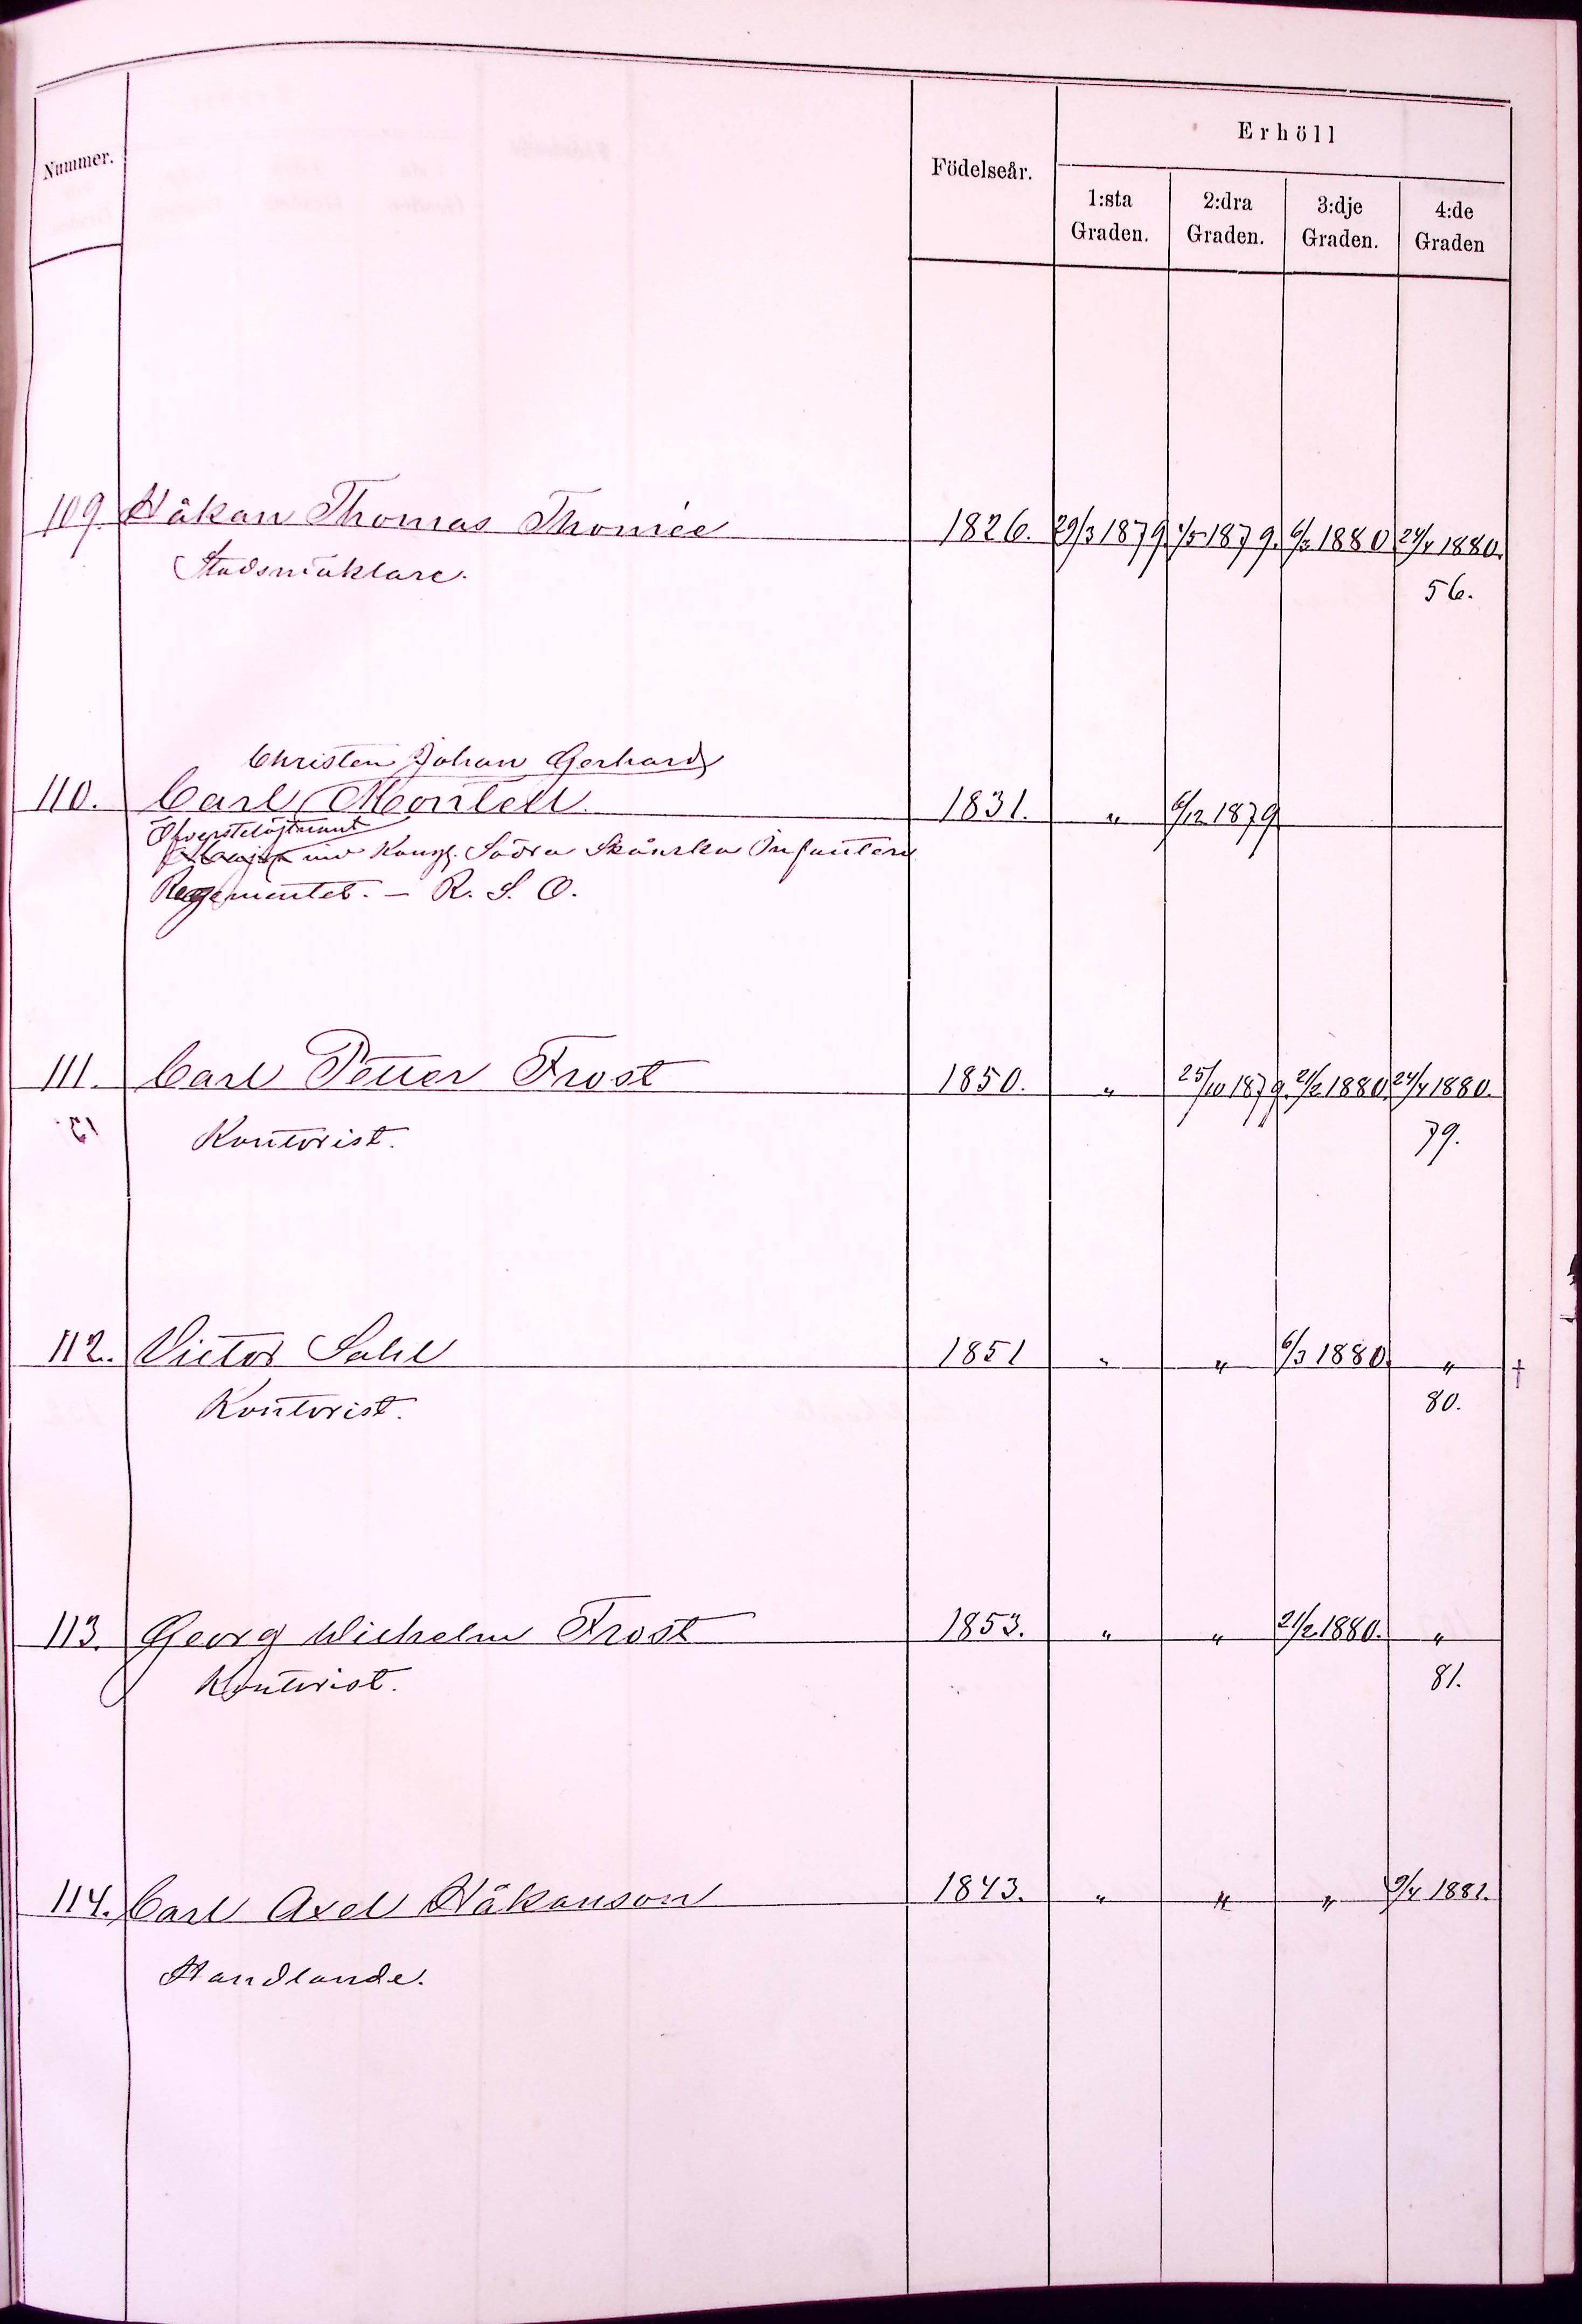 Nummer.
Födelseår.
Erhöll
1:sta Graden.
2:dra Graden.
3:dje Graden.
4:de Graden
109. Håkan Thomas Thomée 1826. 29/3 1879. 1/5 1879. 6/3 1880 24/4 1880.
Stadsmäklare. 56.
Christen Johan Gerhard
110. Carl Montell. 1831. " 6/12 1879
Öfverstelöjtnant
Major vid Kongl. Södra Skånska Infanteri
Regementet. – R. S. O.
111. Carl Petter Frost 1850. " 25/10 1879. 21/2 1880. 24/4 1880.
Kontorist. 79.
112. Victor Sahl 1851 " " 6/3 1880. " †
Kontorist. 80.
113. Georg Wilhelm Frost 1853. " " 21/2 1880. "
Kontorist. 81.
114. Carl Axel Håkanson 1843. " " " 9/4 1881.
Handlande.